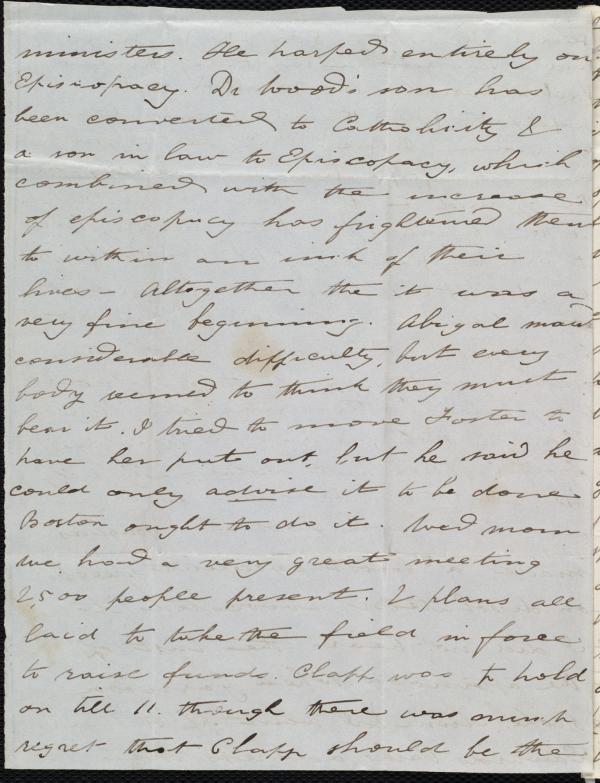 ministers. He harped entirely on
Episcopacy. Dr Wood's son has
been converted to Catholicity &
a son in law to Episcopacy, which
combined with the increase
of episcopacy has frightened them
to within an inch of their
lives - Altogether the it was a
very fine beginning. Abigal made
considerable difficulty, but every
body seemed to think they must
bear it. I tried to move Foster to
have her put out, but he said he
could only advise it to be done
Boston ought to do it. Wed morn
we had a very great meeting
2,500 people present. & plans all
laid to take the field in force
to raise funds. Clapp was to hold
on till 11. though there was much
regret that Clapp should be the